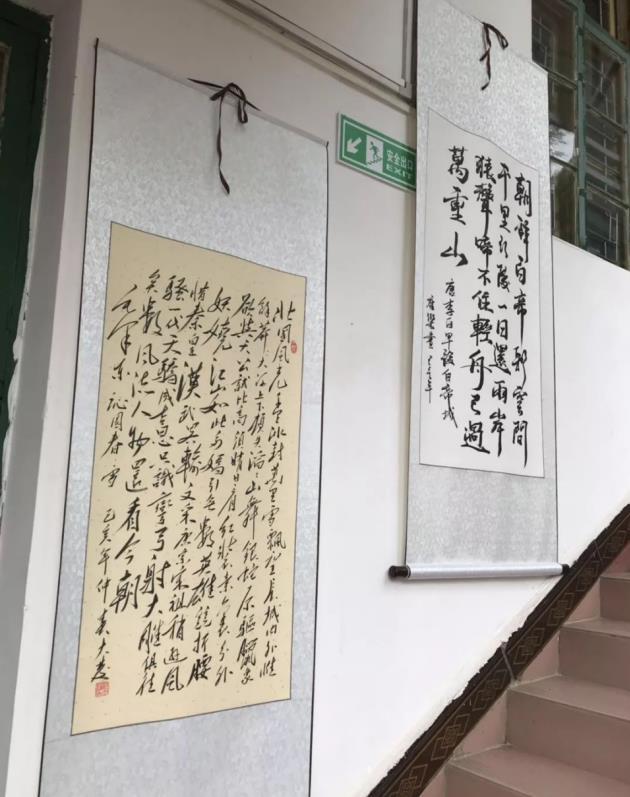 安全出口
EXIT
朝辭白帝彩雲間
千里江陵一日還兩岸
猿聲啼不住輕舟已過
萬重山
唐李白早發白帝城
己亥年
北国风光千里冰封万里雪飘望长城内外惟
余莽莽大河上下顿失滔滔山舞银蛇原驱蜡象
欲与天公试比高须晴日看红装素裹分外
妖娆江山如此多娇引无数英雄竞折腰
惜秦皇漢武略输文采唐宗宋祖稍逊风
骚一代天驕成吉思汗只識彎弓射大雕俱往
矣數风流人物還看今朝
毛泽东沁园春雪 己亥年仲春